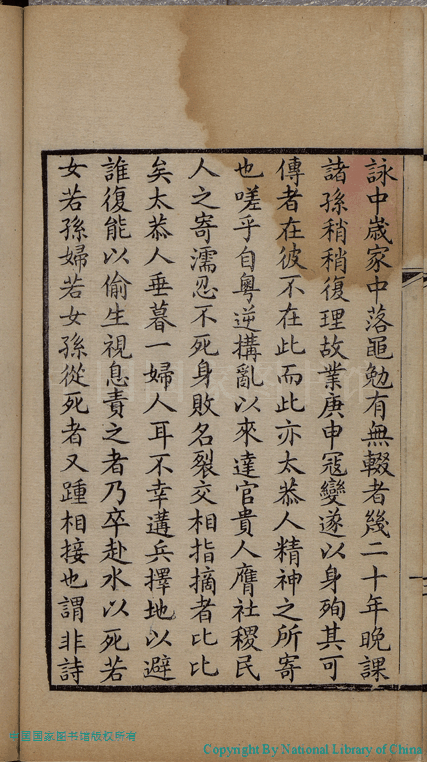 詠中嵗家中落黽勉有無輟者幾二十年晚課
諸孫稍稍復理故業庚申冦變遂以身殉其可
傳者在彼不在此而此亦太恭人精神之所寄
也嗟乎自粵逆搆亂以來達官貴人膺社稷民
人之寄濡忍不死身敗名裂交相指摘者比比
矣太恭人垂暮一婦人耳不幸遘兵擇地以避
誰復能以偷生視息責之者乃卒赴水以死若
女若孫婦若女孫從死者又踵相接也謂非詩
中国国家图书馆版权所有
Copyright By National Library of China